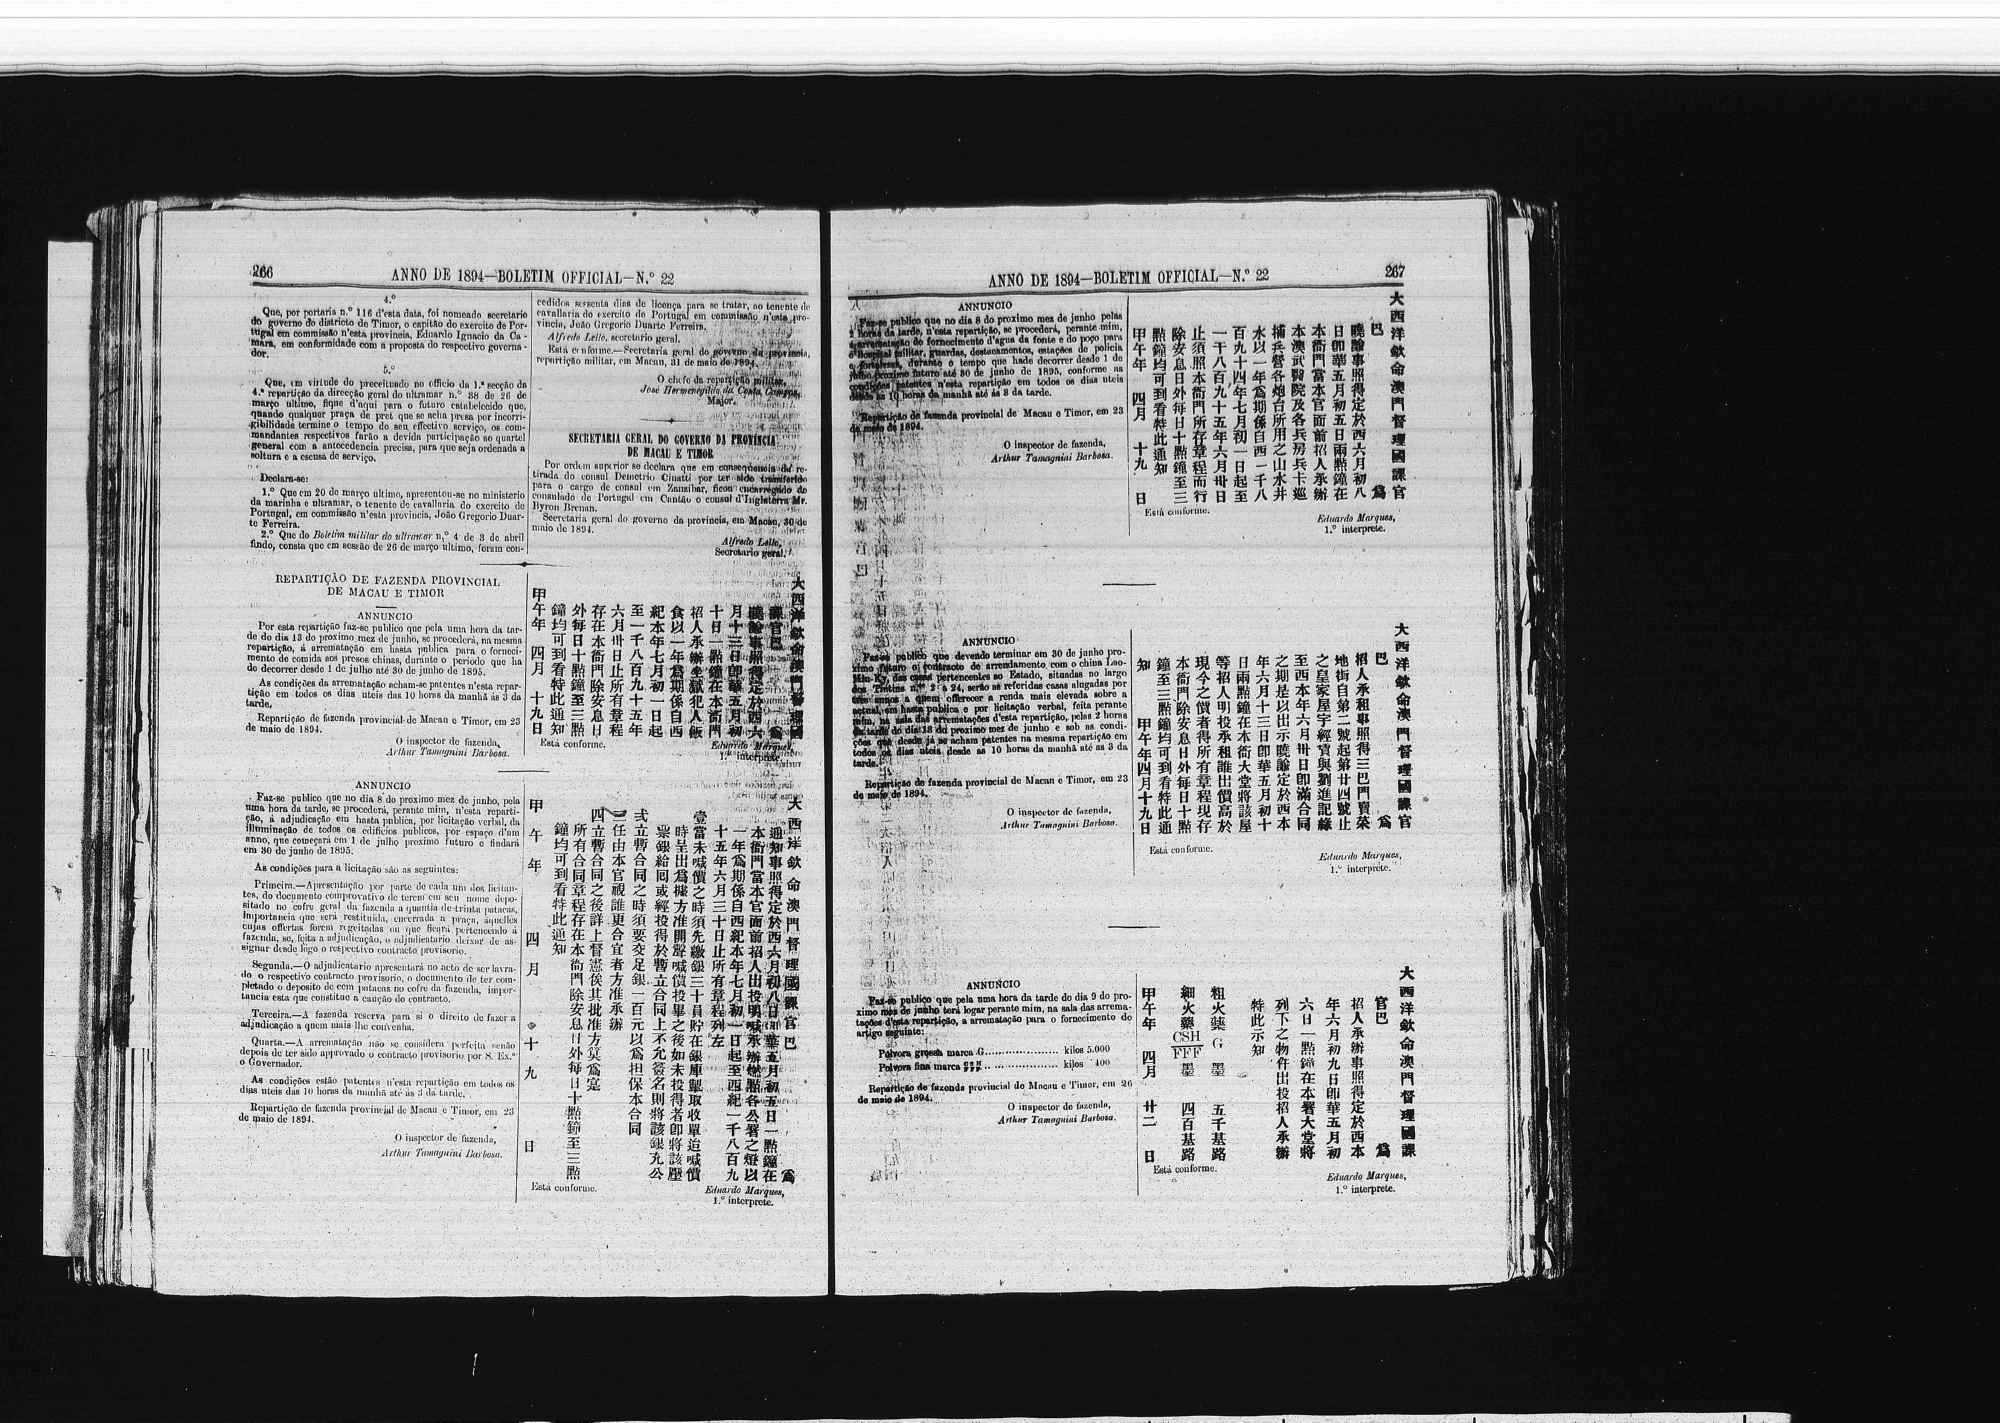 266
ANNO DE 1894—BOLETIM OFFICIAL—N.º 22
4.º
Que, por portaria n.º 116 d'esta data, foi nomeado secretario
do governo do districto de Timor, o capitão do exercito de Por-
tugal em commissão n'esta provincia, Eduardo Ignacio da Ca-
mara, em conformidade com a proposta do respectivo governa-
dor.
5.º
Que, em virtude do preceituado no officio da 1.ª secção da
4.ª repartição da direcção geral do ultramar n.º 38 de 26 de
março ultimo, fique d'aqui para o futuro estabelecido que,
quando qualquer praça de pret que se acha presa por incorri-
gibilidade termine o tempo do seu effectivo serviço, os com-
mandantes respectivos farão a devida participação ao quartel
general com a antecedencia precisa, para que seja ordenada a
soltura e a escusa de serviço.
Declara-se:
1.º Que em 20 de março ultimo, apresentou-se no ministerio
da marinha e ultramar, o tenente de cavallaria do exercito de
Portugal, em commissão n'esta provincia, João Gregorio Duar-
te Ferreira.
2.º Que do Boletim militar do ultramar n.º 4 de 3 de abril
findo, consta que em sessão de 26 de março ultimo, foram con-
cedidos sessenta dias de licença para se tratar, ao tenente de
cavallaria do exercito de Portugal em commissão n'esta pro-
vincia, João Gregorio Duarte Ferreira.
Alfredo Lello, secretario geral.
Está conforme.—Secretaria geral do governo da provincia,
repartição militar, em Macau, 31 de maio de 1894.
O chefe da repartição militar,
José Hermenegildo da Costa Campos,
Major.
SECRETARIA GERAL DO GOVERNO DA PROVINCIA
DE MACAU E TIMOR
Por ordem superior se declara que em consequencia da re-
tirada do consul Demetrio Cinatti por ter sido transferido
para o cargo de consul em Zanzibar, ficou encarregado do
consulado de Portugal em Cantão o consul d'Inglaterra Mr.
Byron Brenan.
Secretaria geral do governo da provincia, em Macau, 30 de
maio de 1894.
Alfredo Lello,
Secretario geral.
REPARTIÇÃO DE FAZENDA PROVINCIAL
DE MACAU E TIMOR
ANNUNCIO
Por esta repartição faz-se publico que pela uma hora da tar-
de do dia 13 do proximo mez de junho, se procederá, na mesma
repartição, á arrematação em hasta publica para o forneci-
mento de comida aos presos chinas, durante o periodo que ha
de decorrer desde 1 de julho até 30 de junho de 1895.
As condições da arrematação acham-se patentes n'esta repar-
tição em todos os dias uteis das 10 horas da manhã ás 3 da
tarde.
Repartição de fazenda provincial de Macau e Timor, em 23
de maio de 1894.
O inspector de fazenda,
Arthur Tamagnini Barbosa.
大西洋欽命澳門督理國
課官巴 爲
曉諭事照得定於西六
月十三日卽華五月初
十日一點鐘在本衙門
招人承辦坐獄犯人飯
食以一年爲期係自西
紀本年七月初一日起
至一千八百九十五年
六月卅日止所有章程
存在本衙門除安息日
外每日十點鐘至三點
鐘均可到看特此通知
甲午年 四月 十九日
Está conforme.
Eduardo Marques,
1.º interprete.
ANNUNCIO
Faz-se publico que no dia 8 do proximo mez de junho, pela
uma hora da tarde, se procederá, perante mim, n'esta reparti-
ção, á adjudicação em hasta publica, por licitação verbal, da
illuminação de todos os edificios publicos, por espaço d'um
anno, que começará em 1 de julho proximo futuro e findará
em 30 de junho de 1895.
As condições para a licitação são as seguintes:
Primeira.—Apresentação por parte de cada um dos licitan-
tes, do documento comprovativo de terem em seu nome depo-
sitado no cofre geral da fazenda a quantia de trinta patacas,
importancia que será restituida, encerrada a praça, áquelles
cujas offertas forem regeitadas ou que ficará pertencendo á
fazenda, se, feita a adjudicação, o adjudicatario deixar de as-
signar desde logo o respectivo contracto provisorio.
Segunda.—O adjudicatario apresentará no acto de ser lavra-
do o respectivo contracto provisorio, o documento de ter com-
pletado o deposito de cem patacas no cofre da fazenda, impor-
tancia esta que constitue a caução do contracto.
Terceira.—A fazenda reserva para si o direito de fazer a
adjudicação a quem mais lhe convenha.
Quarta.—A arrematação não se considera perfeita senão
depois de ter sido approvado o contracto provisorio por S. Ex.ª
o Governador.
As condições estão patentes n'esta repartição em todos os
dias uteis das 10 horas da manhã até ás 3 da tarde.
Repartição de fazenda provincial de Macau e Timor, em 23
de maio de 1894.
O inspector de fazenda,
Arthur Tamagnini Barbosa.
大西洋欽命澳門督理國課官巴 爲
通知事照得定於西六月初八日卽華五月初五日一點鐘在
本衙門當本官面前招人出投明喊承辦燃點各公署之燈以
一年爲期係自西紀本年七月初一日起至西紀一千八百九
十五年六月三十日止所有章程列左
壹當未喊價之時須先繳銀三十員貯在銀庫掣取收單迨喊價
時呈出爲據方准開聲喊價投畢之後如未投得者卽將該壓
票銀給囘或經投得於暫立合同上不允簽名則將該銀充公
弍立暫合同之時須要交足銀一百元以爲担保本合同
三任由本官視誰更合宜者方准承辦
四立暫合同之後詳上督憲俟其批准方算爲寔
所有合同章程存在本衙門除安息日外每日十點鐘至三點
鐘均可到看特此通知
甲午年 四月 十九日
Está conforme.
Eduardo Marques,
1.º interprete.
ANNO DE 1894—BOLETIM OFFICIAL—N.º 22
267
ANNUNCIO
Faz-se publico que no dia 8 do proximo mez de junho pelas
2 horas da tarde, n'esta repartição, se procederá, perante mim,
á arrematação do fornecimento d'agua da fonte e do poço para
o hospital militar, guardas, destacamentos, estações de policia
e fortalezas, durante o tempo que hade decorrer desde 1 de
julho proximo futuro até 30 de junho de 1895, conforme as
condições patentes n'esta repartição em todos os dias uteis
desde as 10 horas da manhã até ás 3 da tarde.
Repartição de fazenda provincial de Macau e Timor, em 23
de maio de 1894.
O inspector de fazenda,
Arthur Tamagnini Barbosa.
大西洋欽命澳門督理國課官
巴 爲
曉諭事照得定於西六月初八
日卽華五月初五日兩點鐘在
本衙門當本官面前招人承辦
本澳武醫院及各兵房兵卡巡
捕兵營各炮台所用之山水井
水以一年爲期係自西一千八
百九十四年七月初一日起至
一千八百九十五年六月卅日
止須照本衙門所存章程而行
除安息日外每日十點鐘至三
點鐘均可到看特此通知
甲午年 四月 十九日
Está conforme.
Eduardo Marques,
1.º interprete.
ANNUNCIO
Faz-se publico que devendo terminar em 30 de junho pro-
ximo futuro o contracto de arrendamento com o china Lao-
Min-Ky, das casas pertencentes ao Estado, situadas no largo
dos Tintins n.os 2 a 24, serão as referidas casas alugadas por
tres annos a quem offerecer a renda mais elevada sobre a
actual, em hasta publica e por licitação verbal, feita perante
mim, na sala das arrematações d'esta repartição, pelas 2 horas
da tarde do dia 13 do proximo mez de junho e sob as condi-
ções que desde já se acham patentes na mesma repartição em
todos os dias uteis desde as 10 horas da manhã até ás 3 da
tarde.
Repartição de fazenda provincial de Macau e Timor, em 23
de maio de 1894.
O inspector de fazenda,
Arthur Tamagnini Barbosa.
大西洋欽命澳門督理國課官
巴 爲
招人承租事照得三巴門賣菜
地街自第二號起第廿四號止
之皇家屋宇經賃與劉進記緣
至西本年六月卅日卽滿合同
之期是以出示曉諭定於西本
年六月十三日卽華五月初十
日兩點鐘在本衙大堂將該屋
等招人明投承租誰出價高於
現今之價者得所有章程現存
本衙門除安息日外每日十點
鐘至三點鐘均可到看特此通
知 甲午年四月十九日
Está conforme.
Eduardo Marques,
1.º interprete.
ANNUNCIO
Faz-se publico que pela uma hora da tarde do dia 9 do pro-
ximo mes de junho terá logar perante mim, na sala das arrema-
tações d'esta repartição, a arrematação para o fornecimento do
artigo seguinte:
Polvora grossa marca G...................... kilos 5.000
Polvora fina marca ...................... kilos 400
Repartição de fazenda provincial de Macau e Timor, em 26
de maio de 1894.
O inspector de fazenda,
Arthur Tamagnini Barbosa.
大西洋欽命澳門督理國課
官巴 爲
招人承辦事照得定於西本
年六月初九日卽華五月初
六日一點鐘在本署大堂將
列下之物件出投招人承辦
特此示知
粗火藥 G 墨 五千基路
細火藥 CSH FFF 墨 四百基路
甲午年 四月 廿二日
Está conforme.
Eduardo Marques,
1.º interprete.